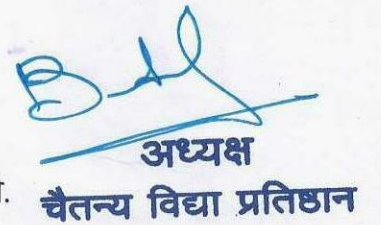 अध्यक्ष
चैतन्य विद्या प्रतिष्ठान